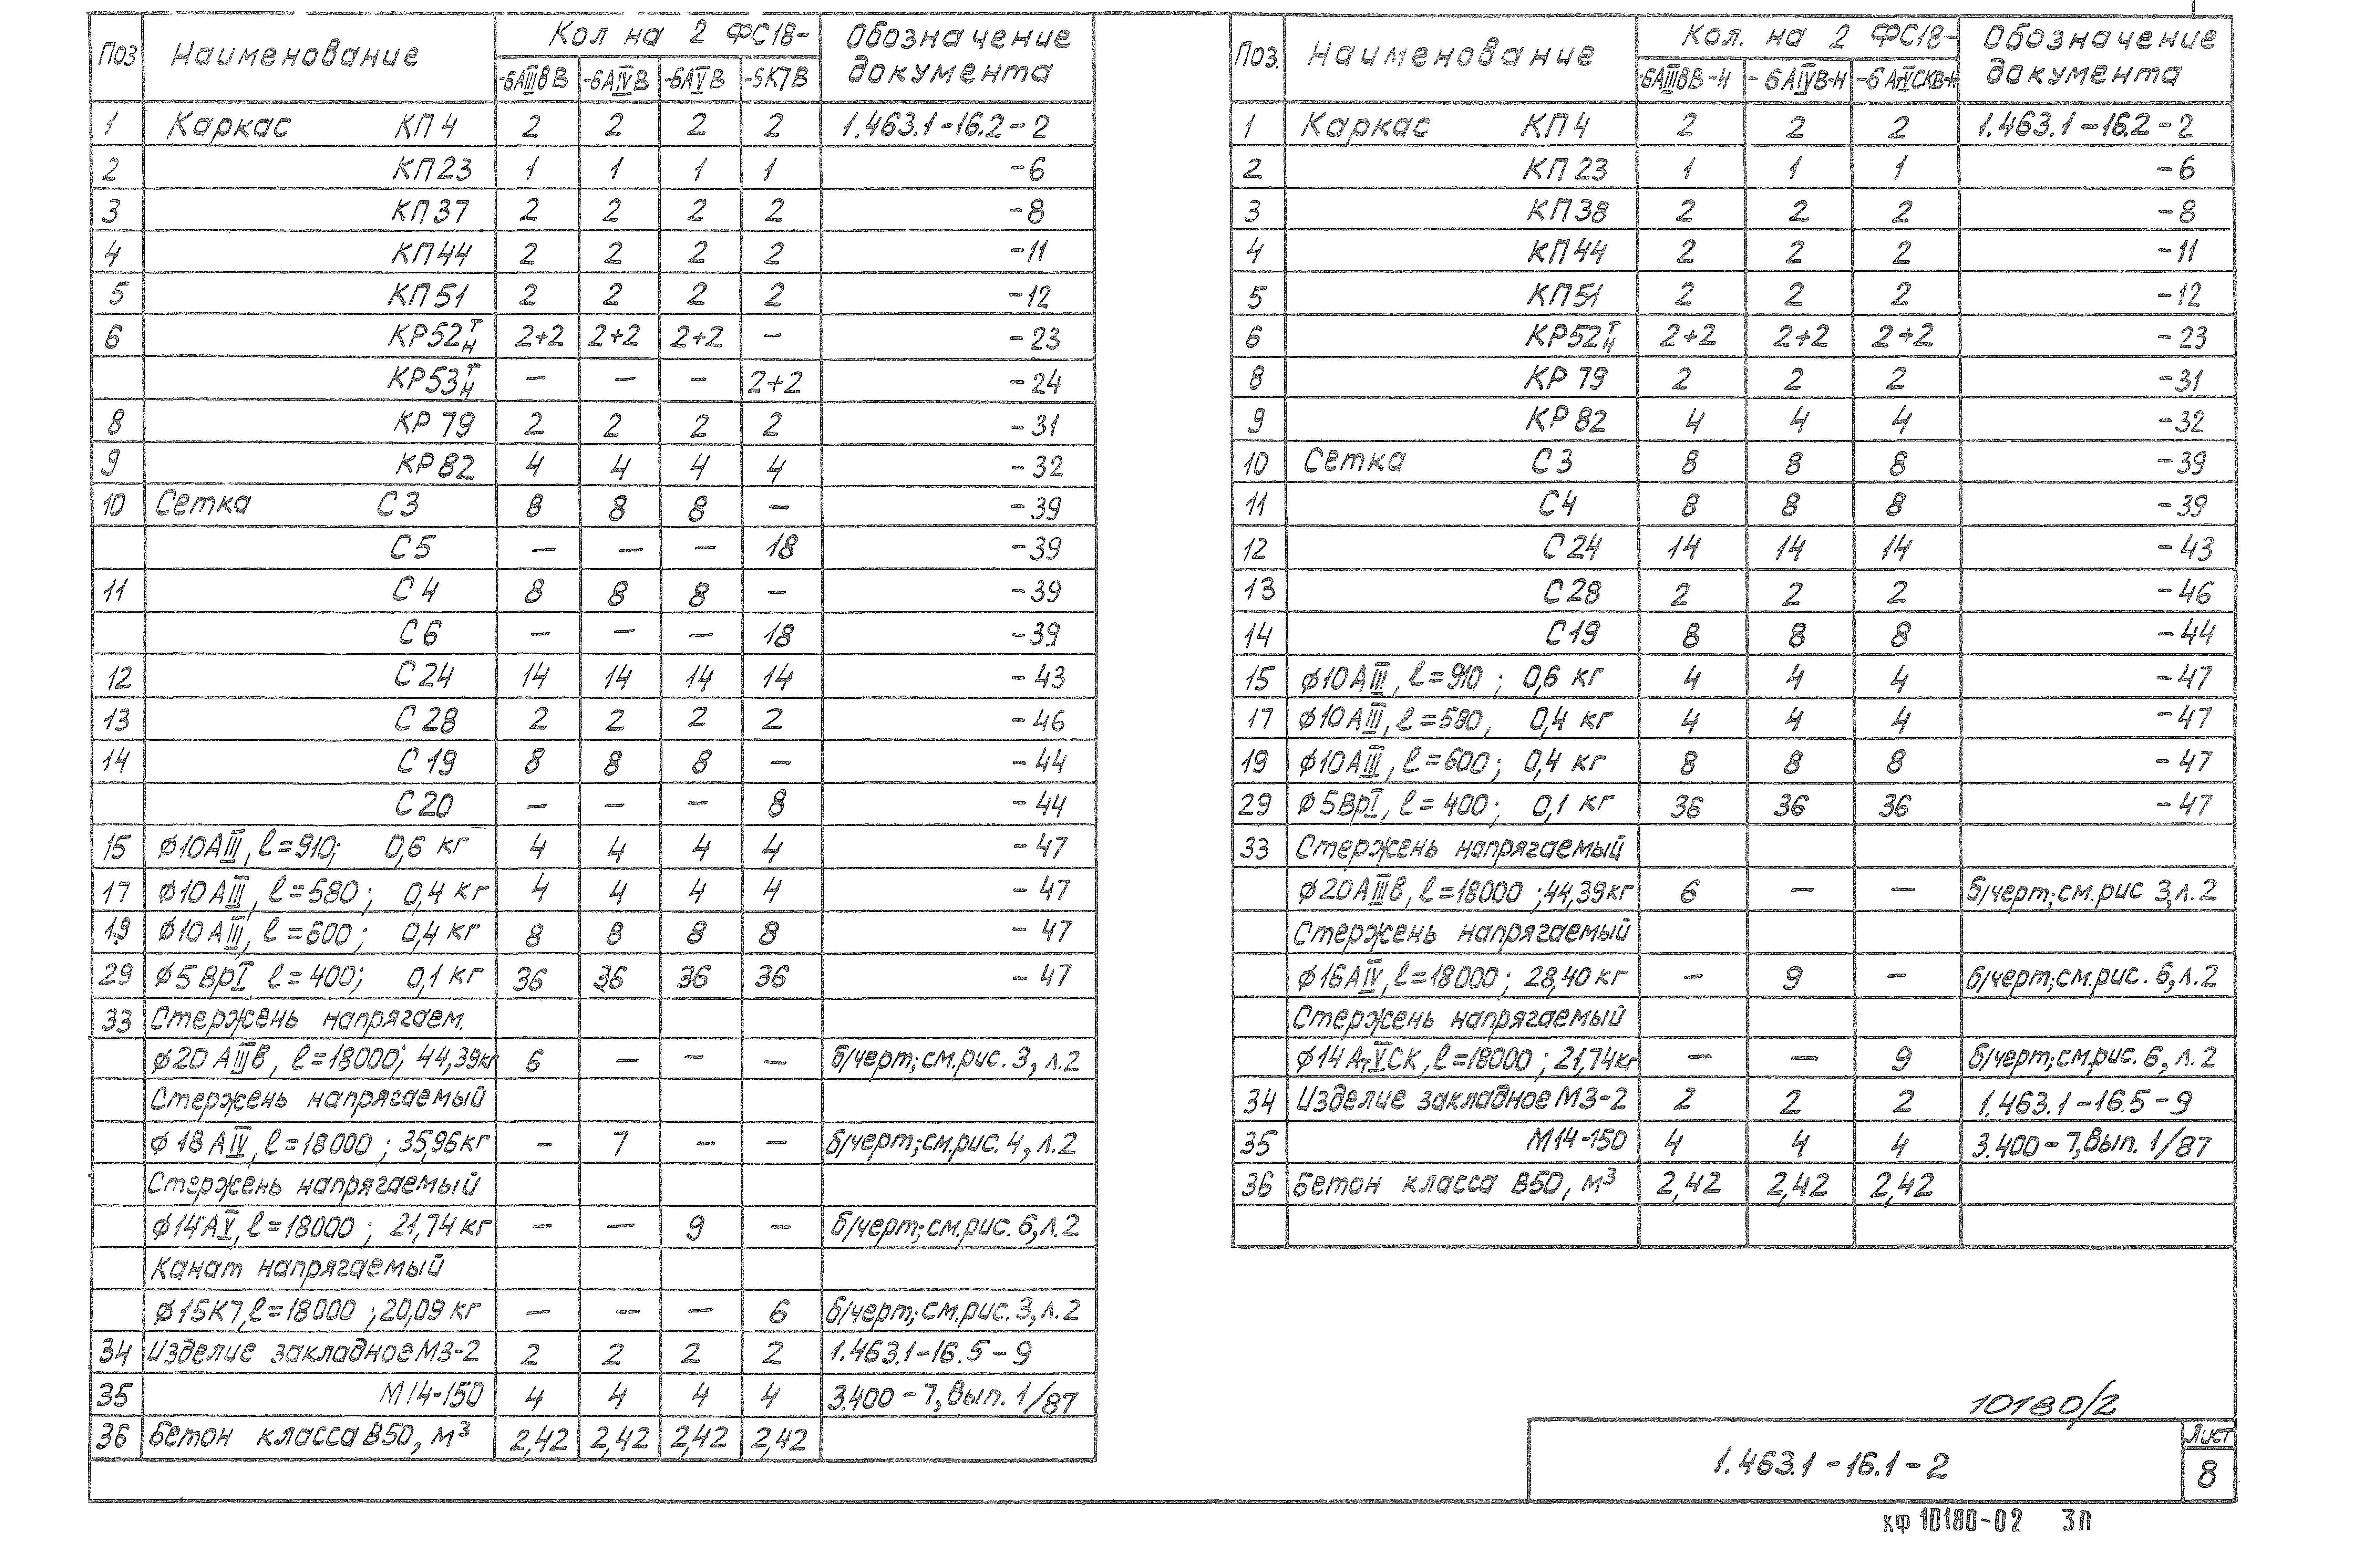 Поз Наименование Кол на 2 ФС18- Обозначение документа
-6АIIIвВ -6АIVВ -6АVВ -5К7В
1 Каркас КП4 2 2 2 2 1.463.1-16.2-2
2 КП23 1 1 1 1 -6
3 КП37 2 2 2 2 -8
4 КП44 2 2 2 2 -11
5 КП51 2 2 2 2 -12
6 КР52 т н 2+2 2+2 2+2 – -23
КР53 т н – – – 2+2 -24
8 КР79 2 2 2 2 -31
9 КР82 4 4 4 4 -32
10 Сетка С3 8 8 8 – -39
С5 – – – 18 -39
11 С4 8 8 8 – -39
С6 – – – 18 -39
12 С24 14 14 14 14 -43
13 С28 2 2 2 2 -46
14 С19 8 8 8 – -44
С20 – – – 8 -44
15 ϕ10АIII, ℓ=910; 0,6 кг 4 4 4 4 -47
17 ϕ10АIII, ℓ=580; 0,4 кг 4 4 4 4 -47
19 ϕ10АIII, ℓ=600; 0,4 кг 8 8 8 8 -47
29 ϕ5ВрI ℓ=400; 0,1 кг 36 36 36 36 -47
33 Стержень напрягаем.
ϕ20АIIIв, ℓ=18000; 44,39кг 6 – – – б/черт; см.рис. 3, л.2
Стержень напрягаемый
ϕ18АIV, ℓ=18000; 35,96кг – 7 – – б/черт; см.рис. 4, л.2
Стержень напрягаемый
ϕ14АV, ℓ=18000; 21,74 кг – – 9 – б/черт; см.рис. 6, л.2
Канат напрягаемый
ϕ15К7, ℓ=18000; 20,09 кг – – – 6 б/черт; см.рис. 3, л.2
34 Изделие закладное МЗ-2 2 2 2 2 1.463.1-16.5-9
35 М14-150 4 4 4 4 3.400-7, Вып. 1/87
36 Бетон класса В50, м³ 2,42 2,42 2,42 2,42
Поз. Наименование Кол. на 2 ФС18- Обозначение документа
-6АIIIвВ-Н -6АIVВ-Н -6АтVСКВ-Н
1 Каркас КП4 2 2 2 1.463.1-16.2-2
2 КП23 1 1 1 -6
3 КП38 2 2 2 -8
4 КП44 2 2 2 -11
5 КП51 2 2 2 -12
6 КР52 т н 2+2 2+2 2+2 -23
8 КР79 2 2 2 -31
9 КР82 4 4 4 -32
10 Сетка С3 8 8 8 -39
11 С4 8 8 8 -39
12 С24 14 14 14 -43
13 С28 2 2 2 -46
14 С19 8 8 8 -44
15 ϕ10АIII, ℓ=910; 0,6 кг 4 4 4 -47
17 ϕ10АIII, ℓ=580, 0,4 кг 4 4 4 -47
19 ϕ10АIII, ℓ=600; 0,4 кг 8 8 8 -47
29 ϕ5ВрI, ℓ=400; 0,1 кг 36 36 36 -47
33 Стержень напрягаемый
ϕ20АIIIв, ℓ=18000; 44,39кг 6 – – б/черт; см.рис 3, л.2
Стержень напрягаемый
ϕ16АIV, ℓ=18000; 28,40 кг – 9 – б/черт; см.рис. 6, л.2
Стержень напрягаемый
ϕ14АтVСК, ℓ=18000; 21,74кг – – 9 б/черт; см.рис. 6, л.2
34 Изделие закладное МЗ-2 2 2 2 1.463.1-16.5-9
35 М14-150 4 4 4 3.400-7, Вып. 1/87
36 Бетон класса В50, м³ 2,42 2,42 2,42
10180/2
1.463.1-16.1-2
Лист
8
кф 10180-02 3П